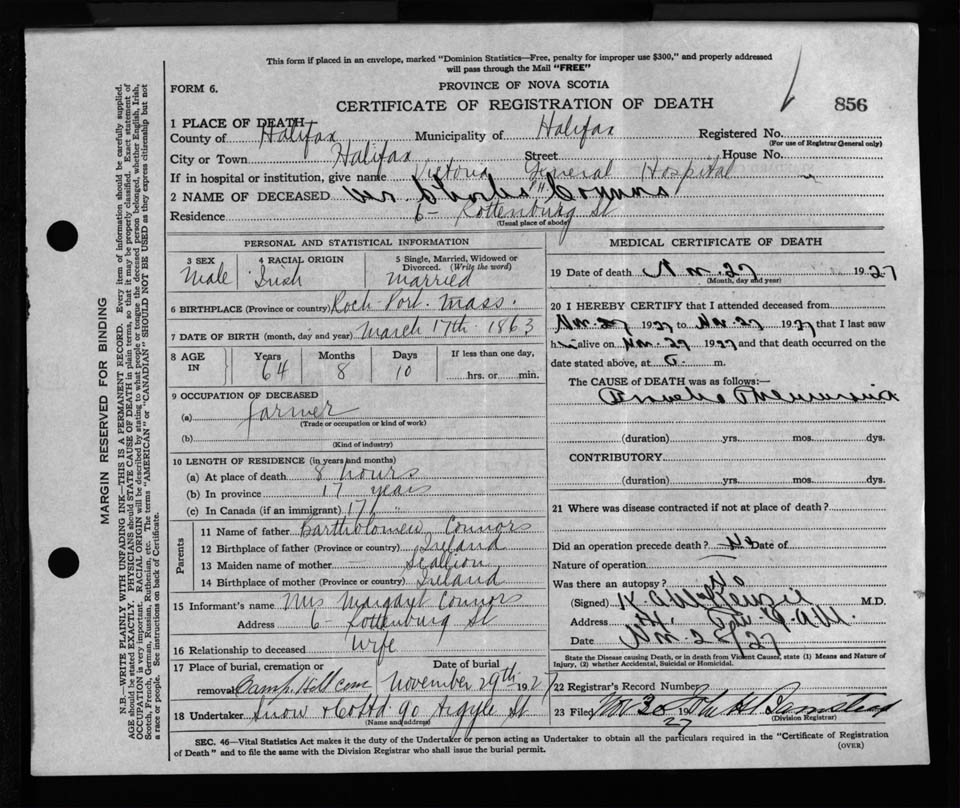 This form if placed in an envelope, marked "Dominion Statistics—Free, penalty for improper use $300," and properly addressed
will pass through the Mail "FREE"
FORM 6.
PROVINCE OF NOVA SCOTIA
CERTIFICATE OF REGISTRATION OF DEATH
856
1 PLACE OF DEATH
County of Halifax Municipality of Halifax Registered No.
(For use of Registrar General only)
City or Town Halifax Street House No.
If in hospital or institution, give name Victoria General Hospital
2 NAME OF DECEASED Mr. Charles H Connors
Residence 6- Rottenburg St
(Usual place of abode)
PERSONAL AND STATISTICAL INFORMATION
3 SEX Male
4 RACIAL ORIGIN Irish
5 Single, Married, Widowed or Divorced. (Write the word) Married
6 BIRTHPLACE (Province or country) Rock Port. Mass.
7 DATE OF BIRTH (month, day and year) March 17th 1863
8 AGE IN Years 64 Months 8 Days 10 If less than one day, hrs. or min.
9 OCCUPATION OF DECEASED
(a) farmer
(Trade or occupation or kind of work)
(b)
(Kind of industry)
10 LENGTH OF RESIDENCE (in years and months)
(a) At place of death 8 hours
(b) In province 17 years
(c) In Canada (if an immigrant) 17 "
Parents
11 Name of father Bartholomew Connors
12 Birthplace of father (Province or country) Ireland
13 Maiden name of mother — Scallion
14 Birthplace of mother (Province or country) Ireland
15 Informant's name Mrs Margaret Connors
Address 6- Rottenburg St
16 Relationship to deceased Wife
17 Place of burial, cremation or removal Camp Hill cem Date of burial November 29th 1927
18 Undertaker Snow & Co Ltd 90 Argyle St
(Name and address)
MEDICAL CERTIFICATE OF DEATH
19 Date of death Nov. 27 1927
(Month, day and year)
20 I HEREBY CERTIFY that I attended deceased from
Nov. 27 1927 to Nov. 27 1927 that I last saw
him alive on Nov. 27 1927 and that death occurred on the
date stated above, at m.
The CAUSE OF DEATH was as follows:—
Broncho Pneumonia
(duration) yrs. mos. dys.
CONTRIBUTORY
(duration) yrs. mos. dys.
21 Where was disease contracted if not at place of death?
Did an operation precede death? No Date of
Nature of operation
Was there an autopsy? No
(Signed) McKenzie M.D.
Address
Date Nov 28/27
State the Disease causing Death, or in death from Violent Causes, state (1) Means and Nature of
Injury, (2) whether Accidental, Suicidal or Homicidal.
22 Registrar's Record Number
23 Filed Nov 30 1927
(Division Registrar)
SEC. 46—Vital Statistics Act makes it the duty of the Undertaker or person acting as Undertaker to obtain all the particulars required in the "Certificate of Registration
of Death" and to file the same with the Division Registrar who shall issue the burial permit.
(OVER)
MARGIN RESERVED FOR BINDING
N.B.—WRITE PLAINLY WITH UNFADING INK—THIS IS A PERMANENT RECORD. Every item of information should be carefully supplied.
AGE should be stated EXACTLY. PHYSICIANS should STATE CAUSE OF DEATH in plain terms, so that it may be properly classified. Exact statement of
OCCUPATION is very important. RACIAL ORIGIN will be described by stating to what people or tongue the deceased person belonged, whether English, Irish,
Scotch, French, German, Russian, Ruthenian, etc. The terms "AMERICAN" or "CANADIAN" SHOULD NOT BE USED as they express citizenship but not
a race or people. See instructions on back of Certificate.